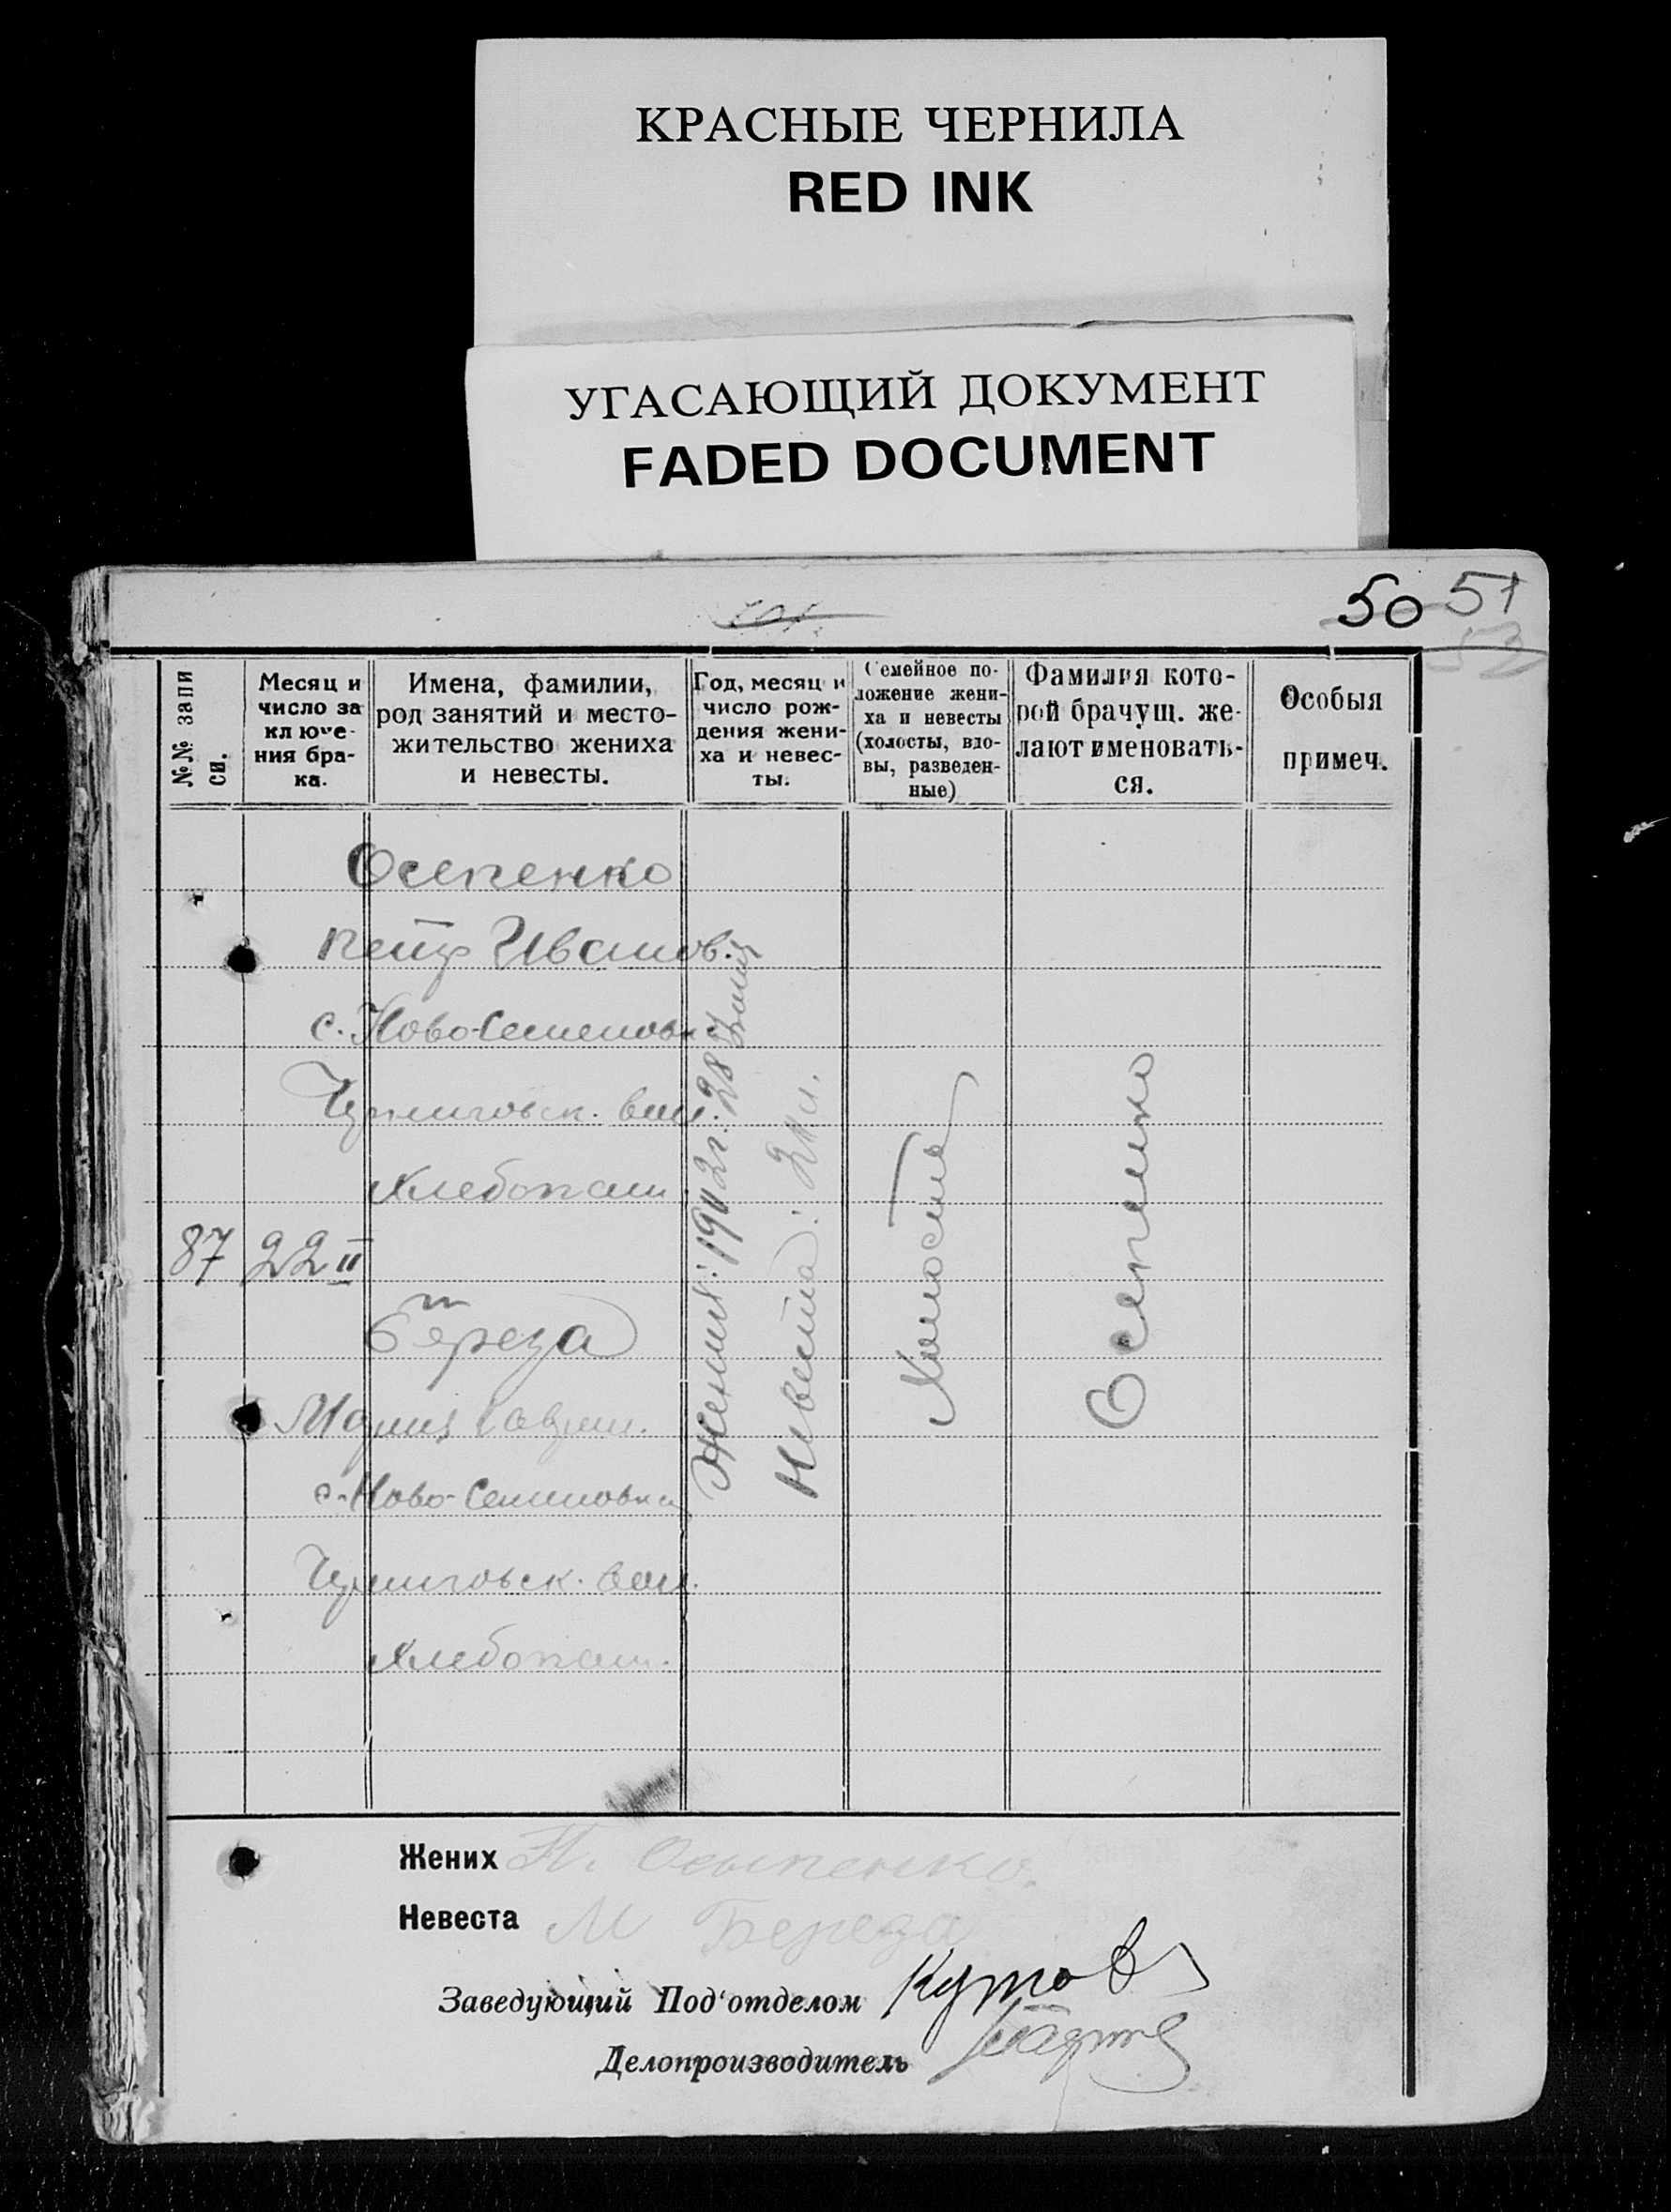 КРАСНЫЕ ЧЕРНИЛА
RED INK
УГАСАЮЩИЙ ДОКУМЕНТ
FADED DOCUMENT
50 51
53
№№ запи
си.
Месяц и
число за
ключе-
ния бра-
ка.
Имена, фамилии,
род занятий и место-
жительство жениха
и невесты.
Год, месяц и
число рож-
дения жени-
ха и невес-
ты.
Семейное по-
ложение жени-
ха и невесты
(холосты, вдо-
вы, разведен-
ные)
Фамилия кото-
рой брачущ. же-
лают именовать-
ся.
Особыя
примеч.
Осепенко
Петр Иванов.
с. Ново-Семеновк
Черниговск. вол.
Хлебопаш
87 22 II
Береза
Мария Гаврил.
с. Ново-Семеновки
Черниговск. вол.
Хлебопаш.
Жених: 1902 г. 28
Невеста:
Холосты
Осепенко
Жених П. Осыпенко.
Невеста М Береза
Заведующий Под'отделом
Делопроизводитель